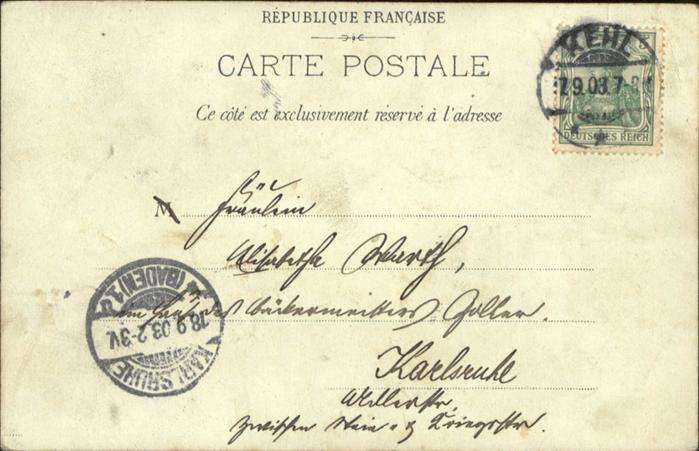 RÉPUBLIQUE FRANÇAISE
CARTE POSTALE
Ce côté est exclusivement réservé à l'adresse
KEHL
7.9.03.7-8
DEUTSCHES REICH
M
Fräulein
Elisabetha Warth,
im Haus des Bäckermeisters Zoller.
Karlsruhe
zwischen Stein u. Kriegsstr.
KARLSRUHE (BADEN) 1
18.9.03.2-3V.